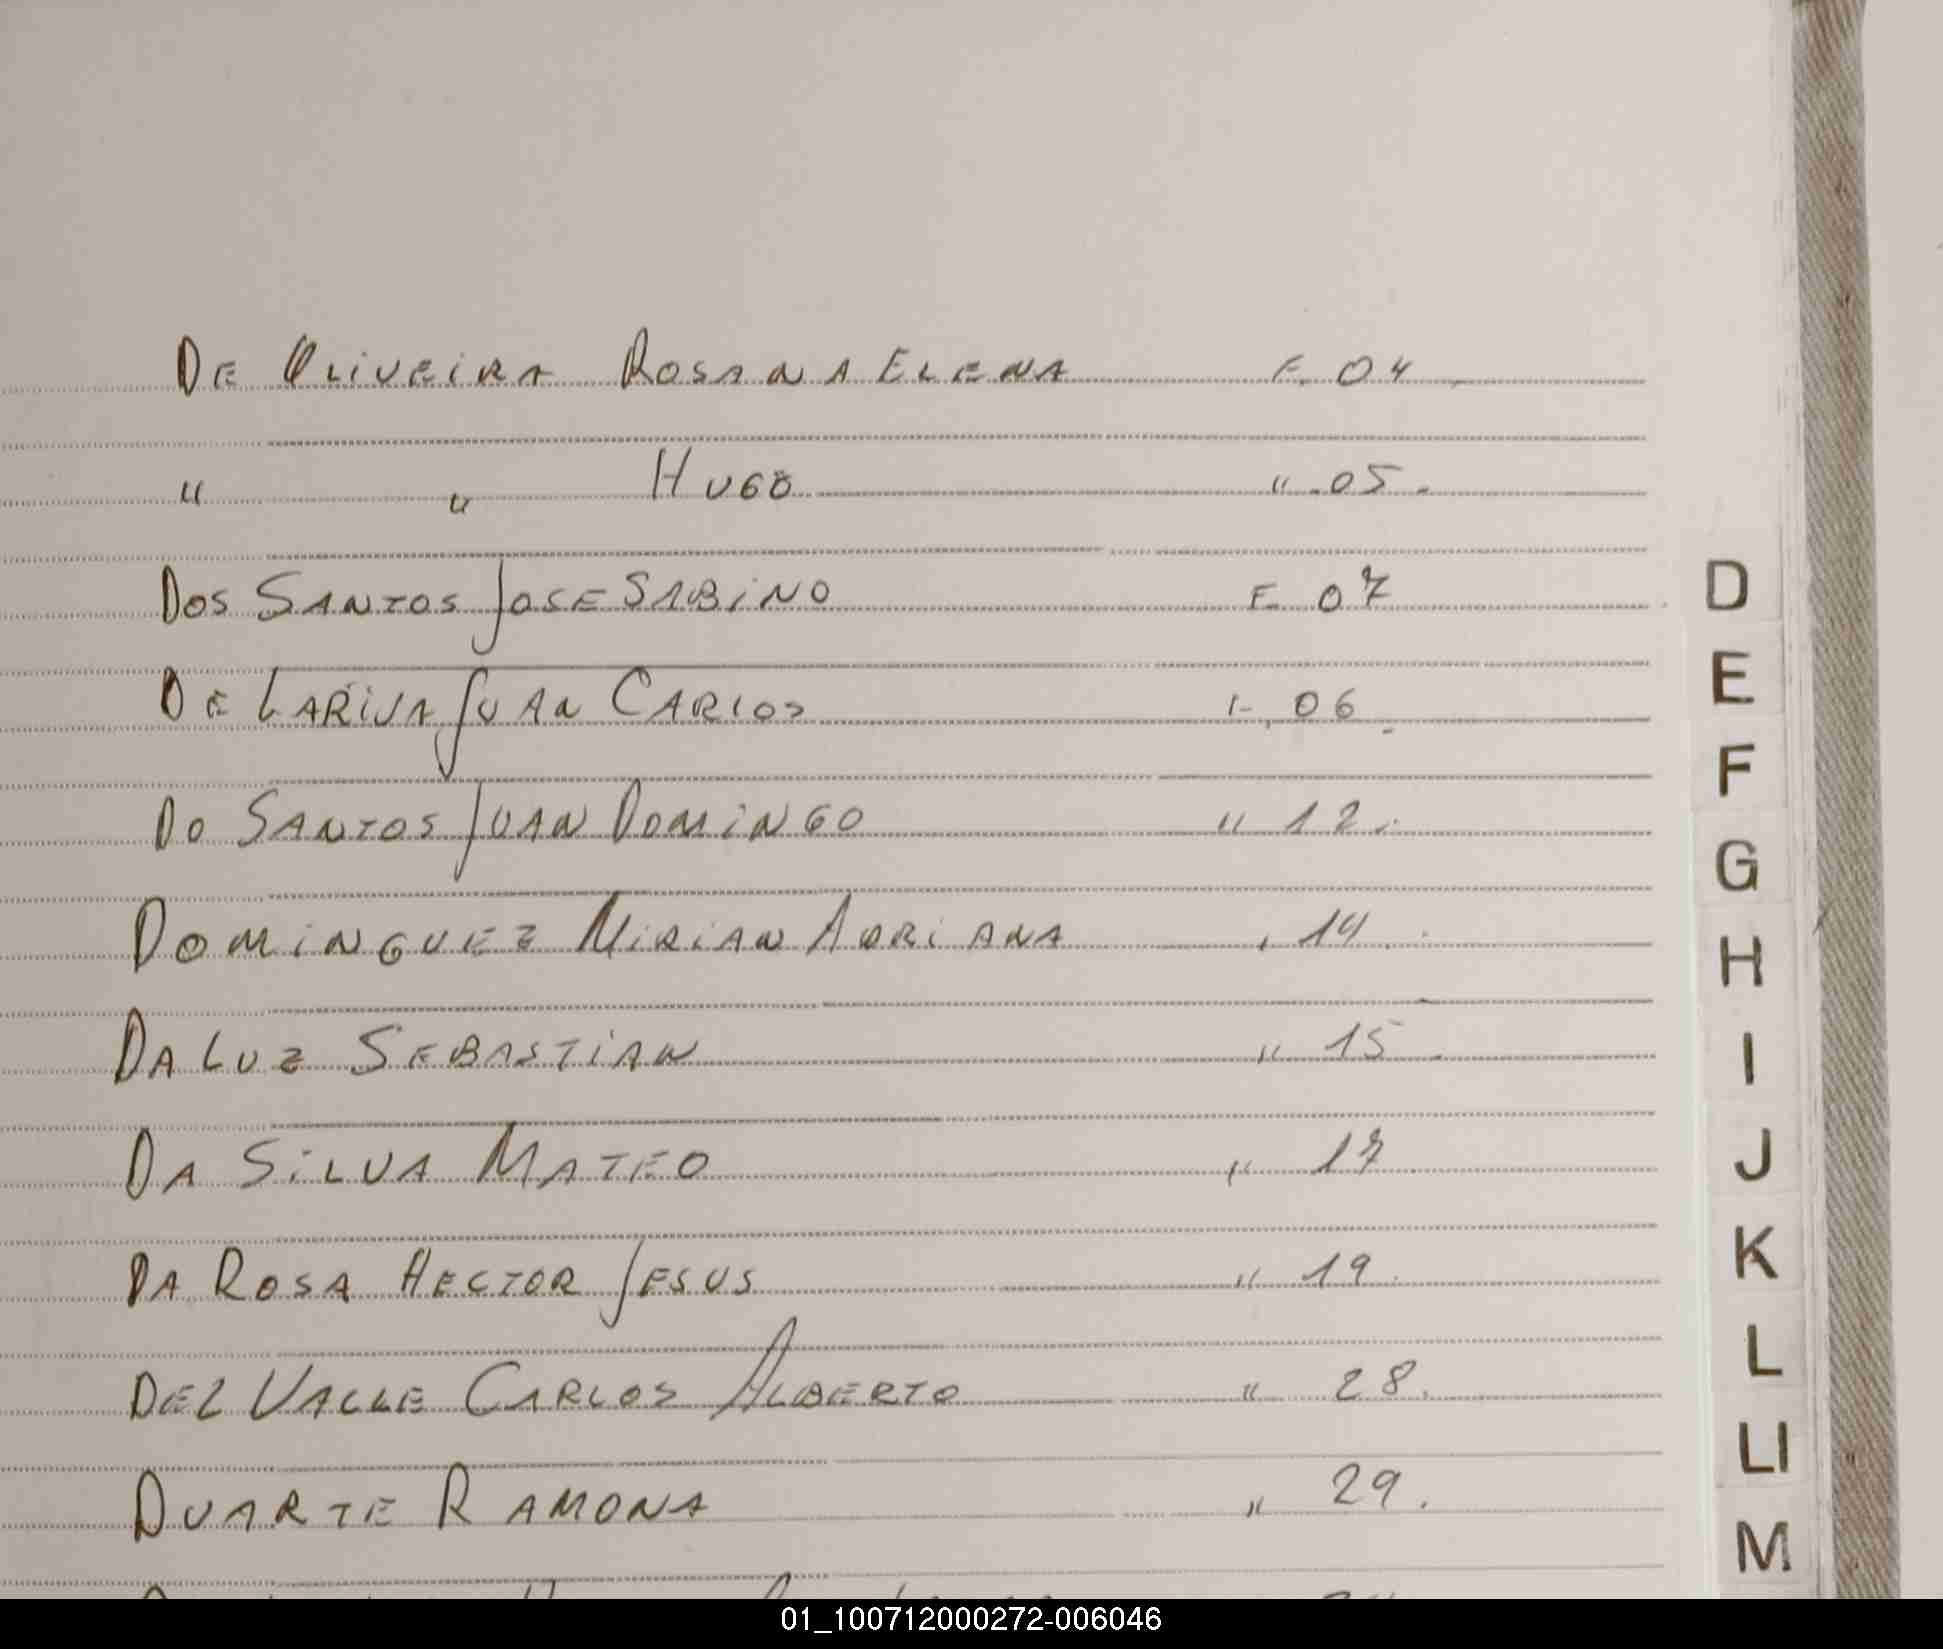 DE OLIVEIRA ROSANA ELENA F. 04
" " HUGO " 05.
DOS SANTOS JOSE SABINO F. 07
DE LARIVA JUAN CARLOS F. 06.
DO SANTOS JUAN DOMINGO " 12.
DOMINGUEZ MIRIAN ADRIANA " 14.
DA LUZ SEBASTIAN " 15.
DA SILVA MATEO " 17
DA ROSA HECTOR JESUS " 19.
DEL VALLE CARLOS ALBERTO " 28.
DUARTE RAMONA " 29.
D
E
F
G
H
I
J
K
L
Ll
M
01_100712000272-006046